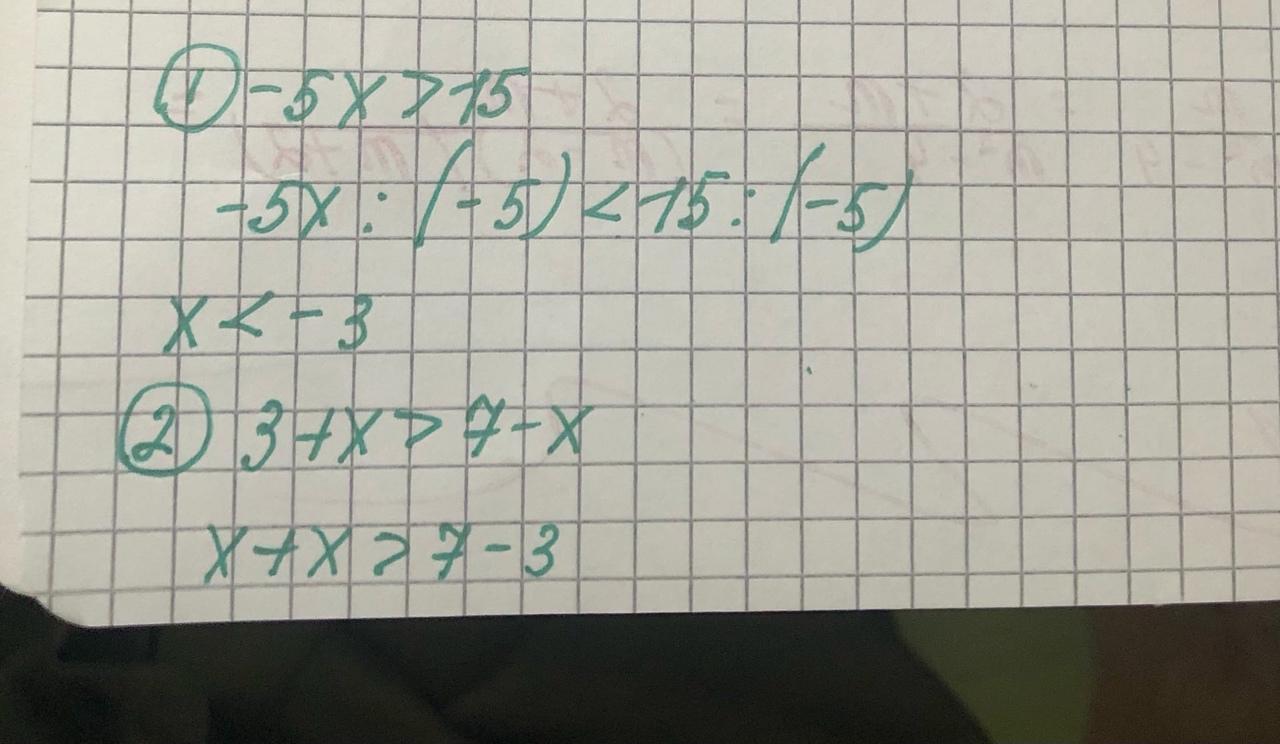 ① -5x > 15
-5x : (-5) < 15 : (-5)
x < -3
② 3+x > 7-x
x+x > 7-3